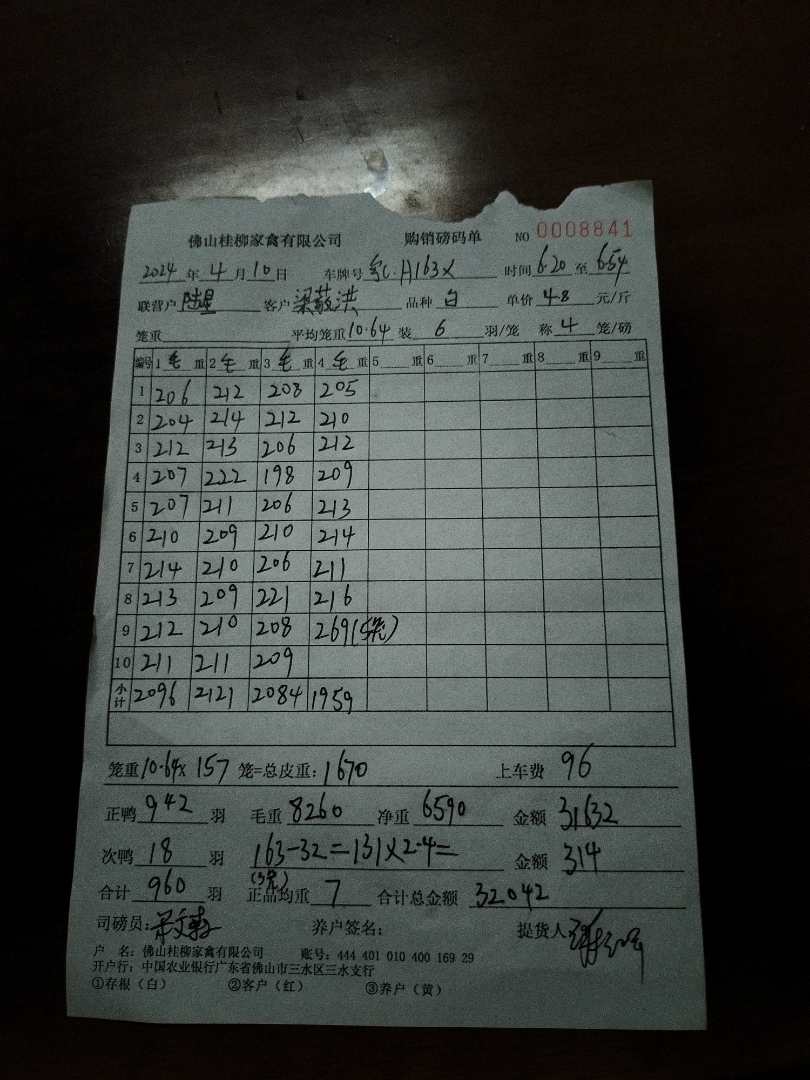 佛山桂柳家禽有限公司 购销磅码单 NO 0008841
2024 年 4 月 10 日 车牌号 粤C·A163X 时间 6·20 至 6·54
联营户 陆星 客户 梁敬洪 品种 白 单价 4·8 元/斤
笼重 平均笼重 10·64 装 6 羽/笼 称 4 笼/磅
编号 1 毛 重 2 毛 重 3 毛 重 4 毛 重 5 重 6 重 7 重 8 重 9 重
1 206 212 208 205
2 204 214 212 210
3 212 213 206 212
4 207 222 198 209
5 207 211 206 213
6 210 209 210 214
7 214 210 206 211
8 213 209 221 216
9 212 210 208 269(5笼)
10 211 211 209
小计 2096 2121 2084 1959
笼重 10·64x 157 笼=总皮重: 1670 上车费 96
正鸭 942 羽 毛重 8260 净重 6590 金额 31632
次鸭 18 羽 163-32=131x2·4= 金额 314
(3笼)
合计 960 羽 正品均重 7 合计总金额 32042
司磅员: 养户签名: 提货人
户 名: 佛山桂柳家禽有限公司 账号: 444 401 010 400 169 29
开户行: 中国农业银行广东省佛山市三水区三水支行
①存根(白) ②客户(红) ③养户(黄)